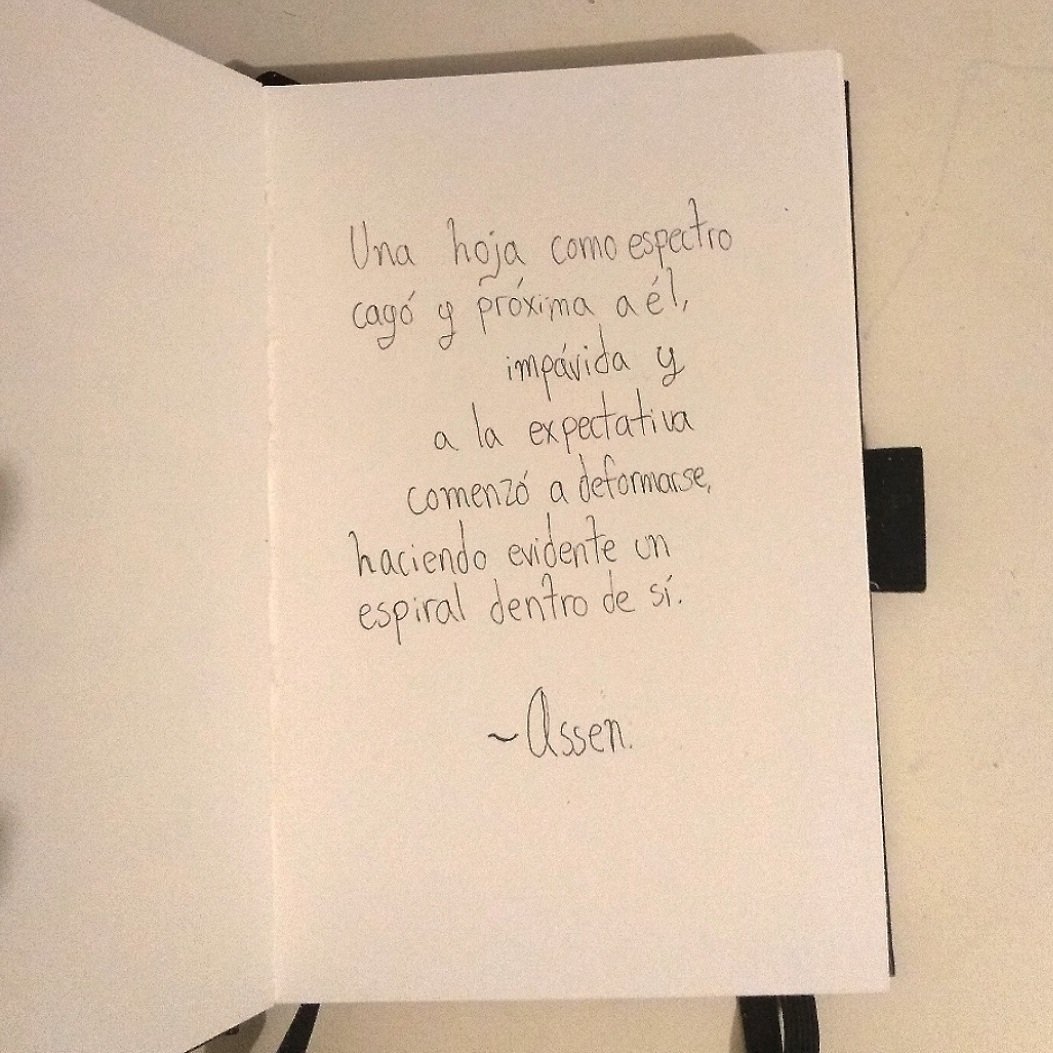 Una hoja como espectro
cagó y próxima a él,
impávida y
a la expectativa
comenzó a deformarse,
haciendo evidente un
espiral dentro de sí.
~Assen.